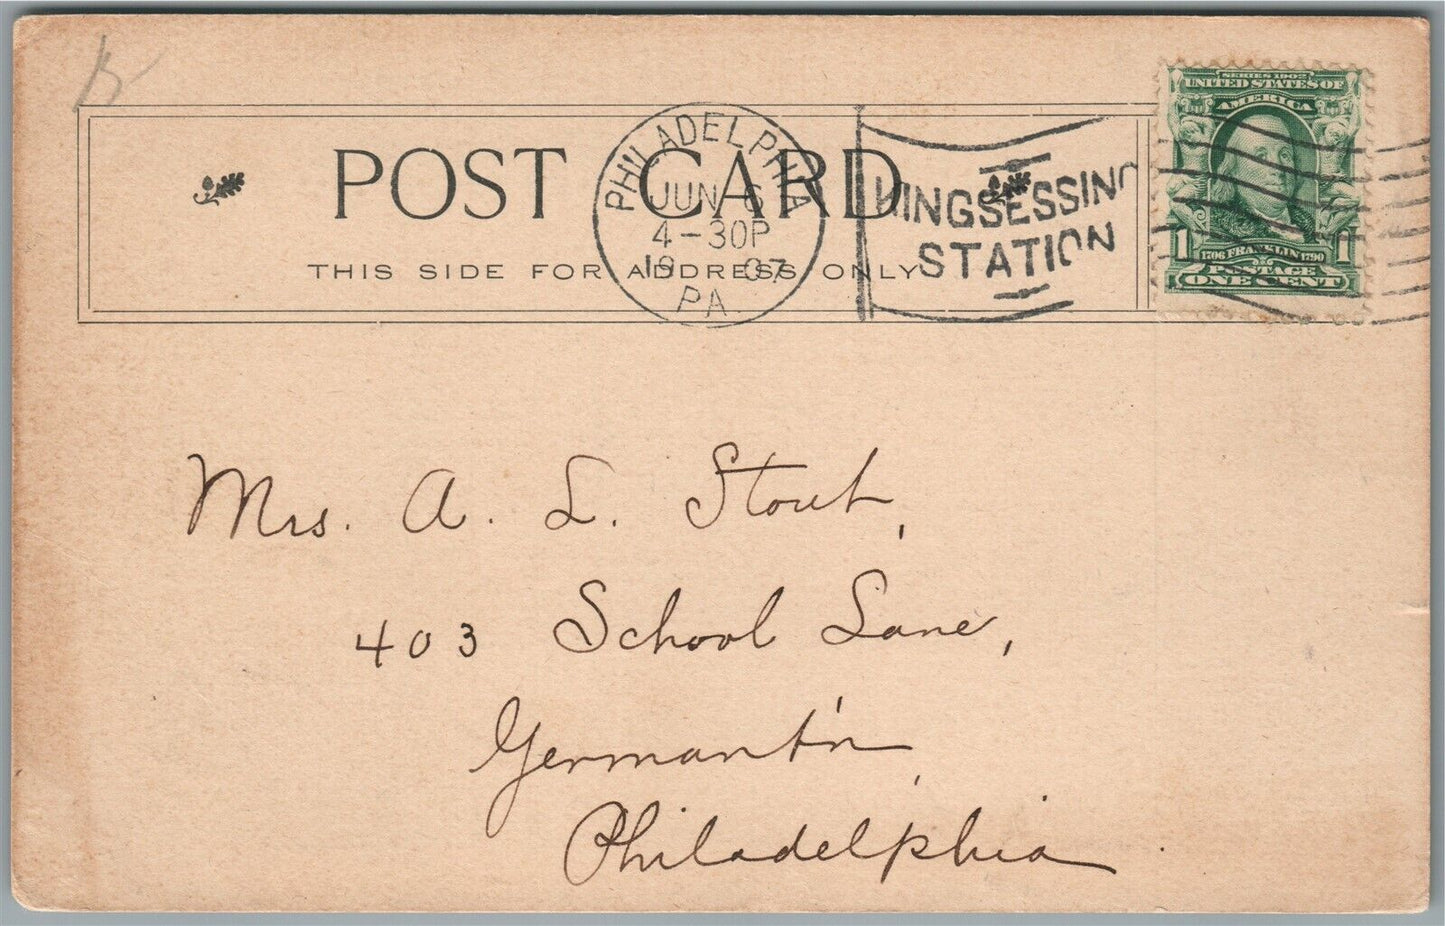 POST CARD
THIS SIDE FOR ADDRESS ONLY
PHILADELPHIA
JUN 6
4-30P
1907
PA
KINGSESSING
STATION
SERIES 1902
UNITED STATES OF
AMERICA
1 1706 FRANKLIN 1790 1
POSTAGE
ONE CENT
Mrs. A. L. Stout,
403 School Lane,
Germant'n,
Philadelphia